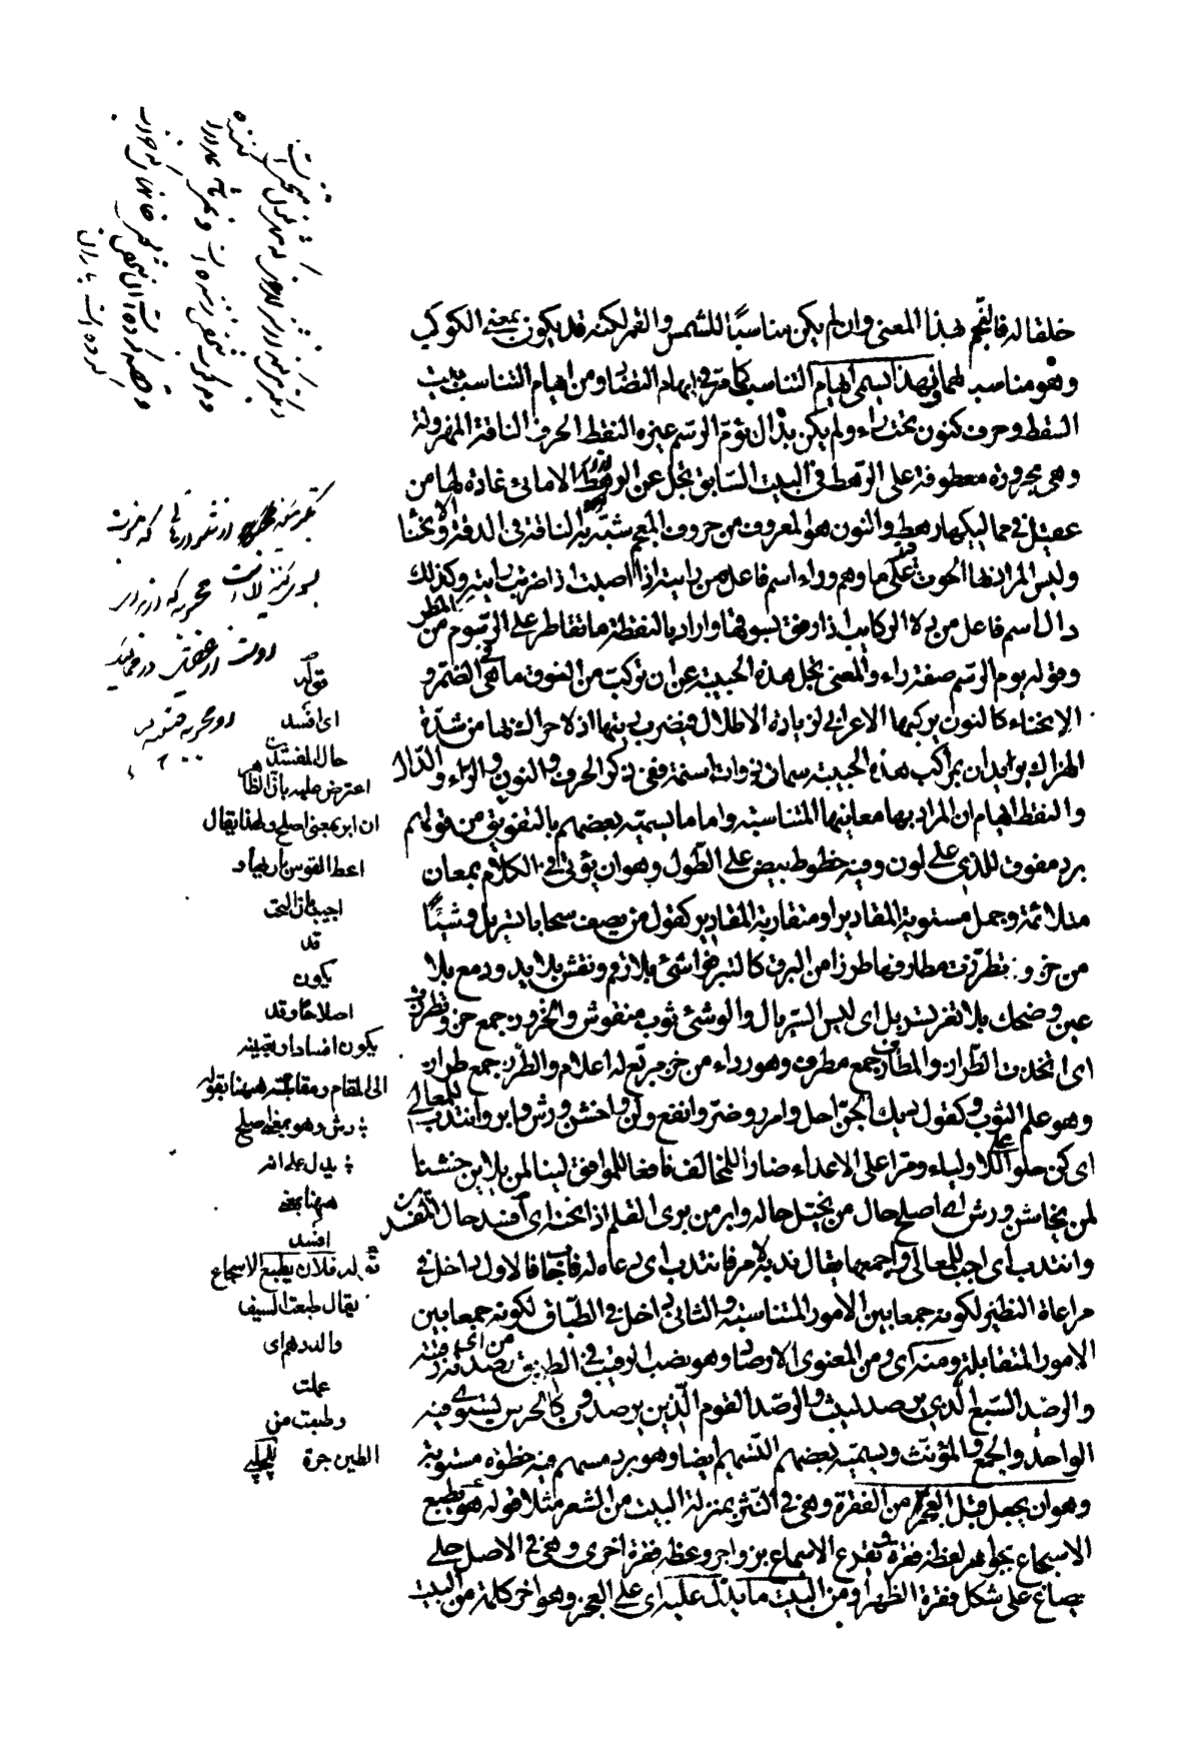 خلقا له فالنجم بهذا المعنى وان لم يكن مناسبًا للشمس والقمر لكنه قد يكون بمعنى الكوكب
وهو مناسب لهما ولهذا يسمى ايهام التناسب كما مر في ايهام التضاد ومن ايهام التناسب بيت
السقط وحرف كنون تحت راء ولم يكن بدال يؤم الرسم غيره النقط الحرف الناقة المهزولة
وهي مجرورة معطوفة على الرهط في البيت السابق تجل عن الرهط الامائي غادة لها من
عقيل في ممالكها رهط والنون هو المعروف من حروف المعجم شبه به الناقة في الدقة والانحناء
وليس المراد بها الحوت على ما وهم وراء اسم فاعل من رايته اذا اصبت اذا ضربت رايته وكذلك
دال اسم فاعل من دلا الركايب اذا رفق بسوقها واراد بالنقط ما تقاطر على الرسوم من المطر
وقوله يوم الرسم صفة راء والمعنى تجل هذه الحبيبة عن ان تركب من النوق ما هي في الضمر و
الانحناء كالنون يركبها الاعرابي لزيارة الاطلال فيضرب ريتها اذ لا حراك بها من شدة
الهزال بل يريدان مراكب هذه الحبيبة سمان ذوات اسنمة ففي ذكر الحرف والنون والراء والدال
والنقط ايهام ان المراد بها معانيها المتناسبة واما ما يسميه بعضهم بالتفويق من قولهم
برد مفوف للذي على لون وفيه خطوط بيض على الطول وهو ان يؤتى في الكلام بمعان
متلائمة وجمل مستوية المقادير او متقاربة المقادير كقول من يصف سحابا تسربل وشيًا
من خزوز تطرزت مطارفها طرزا من البرق كالتبر فوشي بلا رقم ونقش بلا يد ودمع بلا
عين وضحك بلا ثغر تسربل اي لبس السربال والوشي ثوب منقوش والخزوز جمع خز وتطرزت
اي اتخذت الطراز والمطارف جمع مطرف وهو رداء من خز مربع له اعلام والطرز جمع طراز
وهو علم الثوب وكقول ديك الجن احل وامرر وضر وانفع ولن واخشن ورش وابر وانتدب للمعالي
اي كن حلوا للاولياء ومرا على الاعداء ضارا للمخالف نافعا للموافق لينا لمن يلاين خشنا
لمن يخاشن ورش اي اصلح حال من يختل حاله وابر من برى القلم اذا نحته اي افسد حال المفسدين
وانتدب اي اجب للمعالي واجمعها يقال ندبه لامر فانتدب اي دعاه له فاجاب فالاول داخل في
مراعاة النظير لكونه جمعا بين الامور المتناسبة والثاني داخل في الطباق لكونه جمعا بين
الامور المتقابلة ومنه اي ومن المعنوي الارصاد وهو نصب الرقيب في الطريق من رصدته اي رقبته
والرصد السبع الذي يرصد ليثب والرصد القوم الذين يرصدون كالحرس يستوي فيه
الواحد والجمع والمؤنث ويسميه بعضهم التسهيم ايضا وهو برد مسهم فيه خطوط مستوية
وهو ان يجعل قبل العجز من الفقرة وهي في النثر بمنزلة البيت من الشعر مثلا قوله هو يطبع
الاسجاع بجواهر لفظه فقرة ويقرع الاسماع بزواجر وعظه فقرة اخرى وهي في الاصل حلي
يصاغ على شكل فقرة الظهر او من البيت ما يدل عليه اي على العجز وهو اخر كلمة من البيت
قوله
اي افسد
حال المفسدين
اعترض عليه بان الظاهر
ان ابر بمعنى اصلح ولهذا يقال
اعط القوس باريها و
اجيب بان النحت
قد
يكون
اصلاحا وقد
يكون افسادا وتعيينه
الى المقام ومقابلته ههنا بقوله
رش وهو بمعنى اصلح
يدل على انه
ههنا بمعنى
افسد
قوله فلان يطبع الاسجاع
يقال طبعت السيف
والدرهم اي
عملت
وطبعت من
الطين جرة چلپي